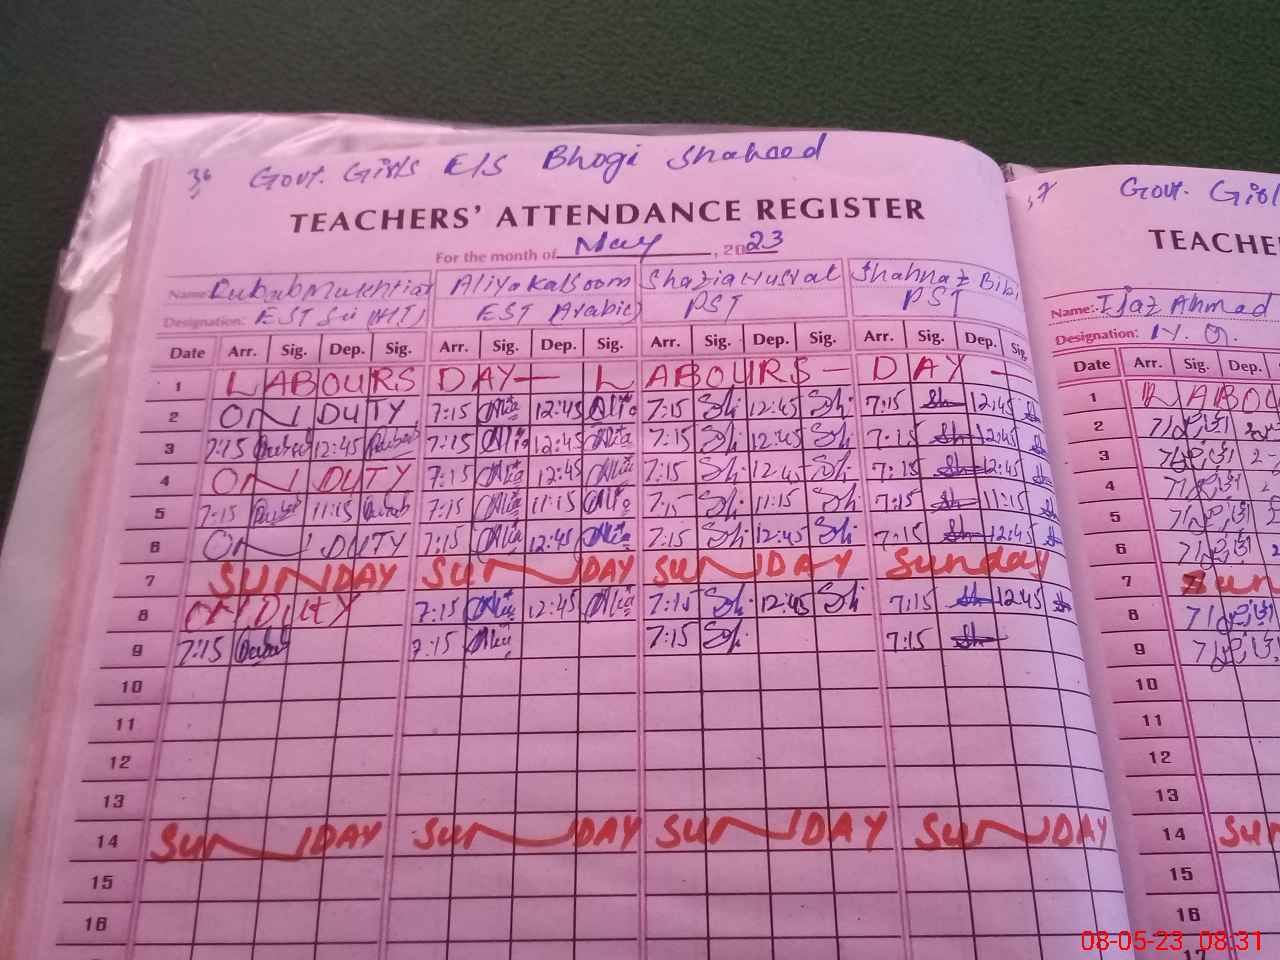 36 Govt. Girls E/S Bhogi Shaheed
TEACHERS' ATTENDANCE REGISTER
For the month of May, 2023
Name: Rubab Mukhtiar Aliya Kalsoom Shazia Nusrat Shahnaz Bibi
Designation: EST EST (Arabic) PST PST
Date Arr. Sig. Dep. Sig. Arr. Sig. Dep. Sig. Arr. Sig. Dep. Sig. Arr. Sig. Dep. Sig.
1 LABOURS DAY — LABOURS — DAY —
2 ON DUTY 7:15 Alia 12:45 Alia 7:15 Sh. 12:45 Sh. 7:15 Sh 12:45 Sh
3 7:15 Rubab 12:45 Rubab 7:15 Alia 12:45 Alia 7:15 Sh. 12:45 Sh. 7:15 Sh 12:45 Sh
4 ON DUTY 7:15 Alia 12:45 Alia 7:15 Sh. 12:45 Sh. 7:15 Sh 12:45 Sh
5 7:15 Rubab 11:15 Rubab 7:15 Alia 11:15 Alia 7:15 Sh. 11:15 Sh. 7:15 Sh 11:15 Sh
6 ON DUTY 7:15 Alia 12:45 Alia 7:15 Sh. 12:45 Sh. 7:15 Sh 12:45 Sh
7 SUNDAY SUNDAY SUNDAY Sunday
8 ON DUTY 7:15 Alia 12:45 Alia 7:15 Sh. 12:45 Sh. 7:15 Sh 12:45 Sh
9 7:15 Rubab 7:15 Alia 7:15 Sh. 7:15 Sh
10
11
12
13
14 SUNDAY SUNDAY SUNDAY SUNDAY
15
16
37 Govt. Girl
TEACHE
Name: Ijaz Ahmad
Designation: N.Q.
Date Arr. Sig. Dep.
1 LABOU
2
3
4
5
6
7 Sun
8
9
10
11
12
13
14 SU
15
16
17
08-05-23 08:31